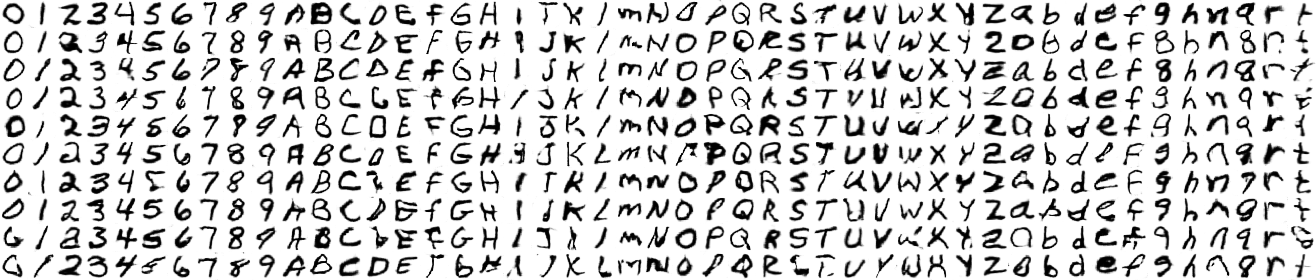 0 1 2 3 4 5 6 7 8 9 A B C D E F G H I J K l m N O P Q R S T U V W X Y Z a b d e f g h n q r t
0 1 2 3 4 5 6 7 8 9 A B C D E F G H I J K l m N O P Q R S T U V W X Y Z a b d e f 8 h n 8 r t
0 1 2 3 4 5 6 7 8 9 A B C D E F G H I J K l m N O P Q R S T U V W X Y Z a b d e f 8 h n 8 r t
0 1 2 3 4 5 6 7 8 9 A B C E F G H I J K l m N O P Q R S T U V W X Y Z a b d e f g h n q r t
0 1 2 3 4 5 6 7 8 9 A B C D E F G H I J K l m N O P Q R S T U V W X Y Z a b d e f g h n q r t
0 1 2 3 4 5 6 7 8 9 A B C D E F G H J K L m N P Q R S T U V W X Y Z a b d e F g h n q r t
0 1 2 3 4 5 6 7 8 9 A B C E F G H I J K l m N O P Q R S T U V W X Y Z a b d e F g h n 7 r t
0 1 2 3 4 5 6 7 8 9 A B C D E f G H I J K L m N O P Q R S T U V W X Y Z a b d e f g h n q r t
G 1 2 3 4 5 6 7 8 9 A B C E F G H I J l m N O P Q R S T U V W X Y Z a b d e f g h n q r t
G 1 2 3 4 5 6 7 8 9 A B C D E b H I J K L m N O P Q R S T U V W X Y Z a b d e f g h n q r t